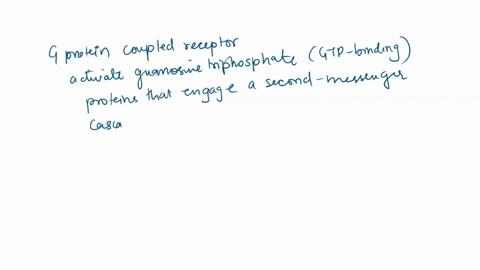 G protein coupled receptor
activate guanosine triphosphate (GTP-binding)
proteins that engage a second-messenger
casca